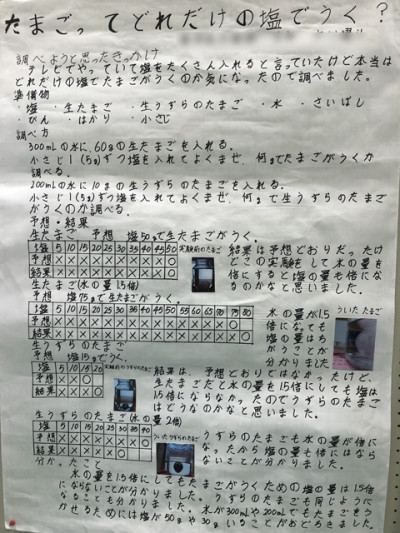 たまごってどれだけの塩でうく?
調べようと思ったきっかけ
テレビでやっていて塩をたくさん入れると言っていたけど本当は
どれだけの塩でたまごがうくのか気になったので調べました。
準備物
・塩 ・生たまご ・生うずらのたまご ・水 ・さいばし
・びん ・はかり ・小さじ
調べ方
300mLの水に、60gの生たまごを入れる。
小さじ1(5g)ずつ塩を入れてよくまぜ、何gでたまごがうくか
調べる。
200mLの水に10gの生うずらのたまごを入れる。
小さじ1(5g)ずつ塩を入れてよくまぜ、何gで生うずらのたま
ごがうくのか調べる。
予想・結果
生たまご 予想 塩50gで生たまごがうく。
塩 5 10 15 20 25 30 35 40 45 50
予想 × × × × × × × × × ○
結果 × × × × × × × × × ○
実験前のたまご
結果は予想どおりだったけ
どこの実験をして水の量を
倍にすると塩の量も倍にな
るのかなと思いました。
生たまご(水の量1.5倍)
予想 塩75gで生たまごがうく。
塩 5 10 15 20 25 30 35 40 45 50 55 60 65 70 75 80
予想
結果
水の量が1.5
倍になっても
塩の量はち
がうことが
分かりました
ういた たまご
生うずらのたまご
予想 塩15gでうく。
塩 5 10 15 20
予想 × × ○
結果 × × ×
実験前のうずらのたまご
結果は、予想どおりではなかったけど、
生たまごだと水の量を1.5倍にしても塩は
1.5倍にならなかったのでうずらのたまご
はどうなのかなと思いました。
生うずらのたまご(水の量2倍)
塩 5 10 15 20 25 30
予想
結果
ういたうずらのたまご
うずらのたまごも水の量が倍に
なったから塩の量も倍にはなら
ないことが分かりました。
分かったこと
水の量を1.5倍にしてもたまごがうくための塩の量は1.5倍
にならないことが分かりました。うずらのたまごも同じように
なることも分かりました。水が300mLや200mLでもたまごをう
かせるためには塩が50gや30gいることがおどろきました。